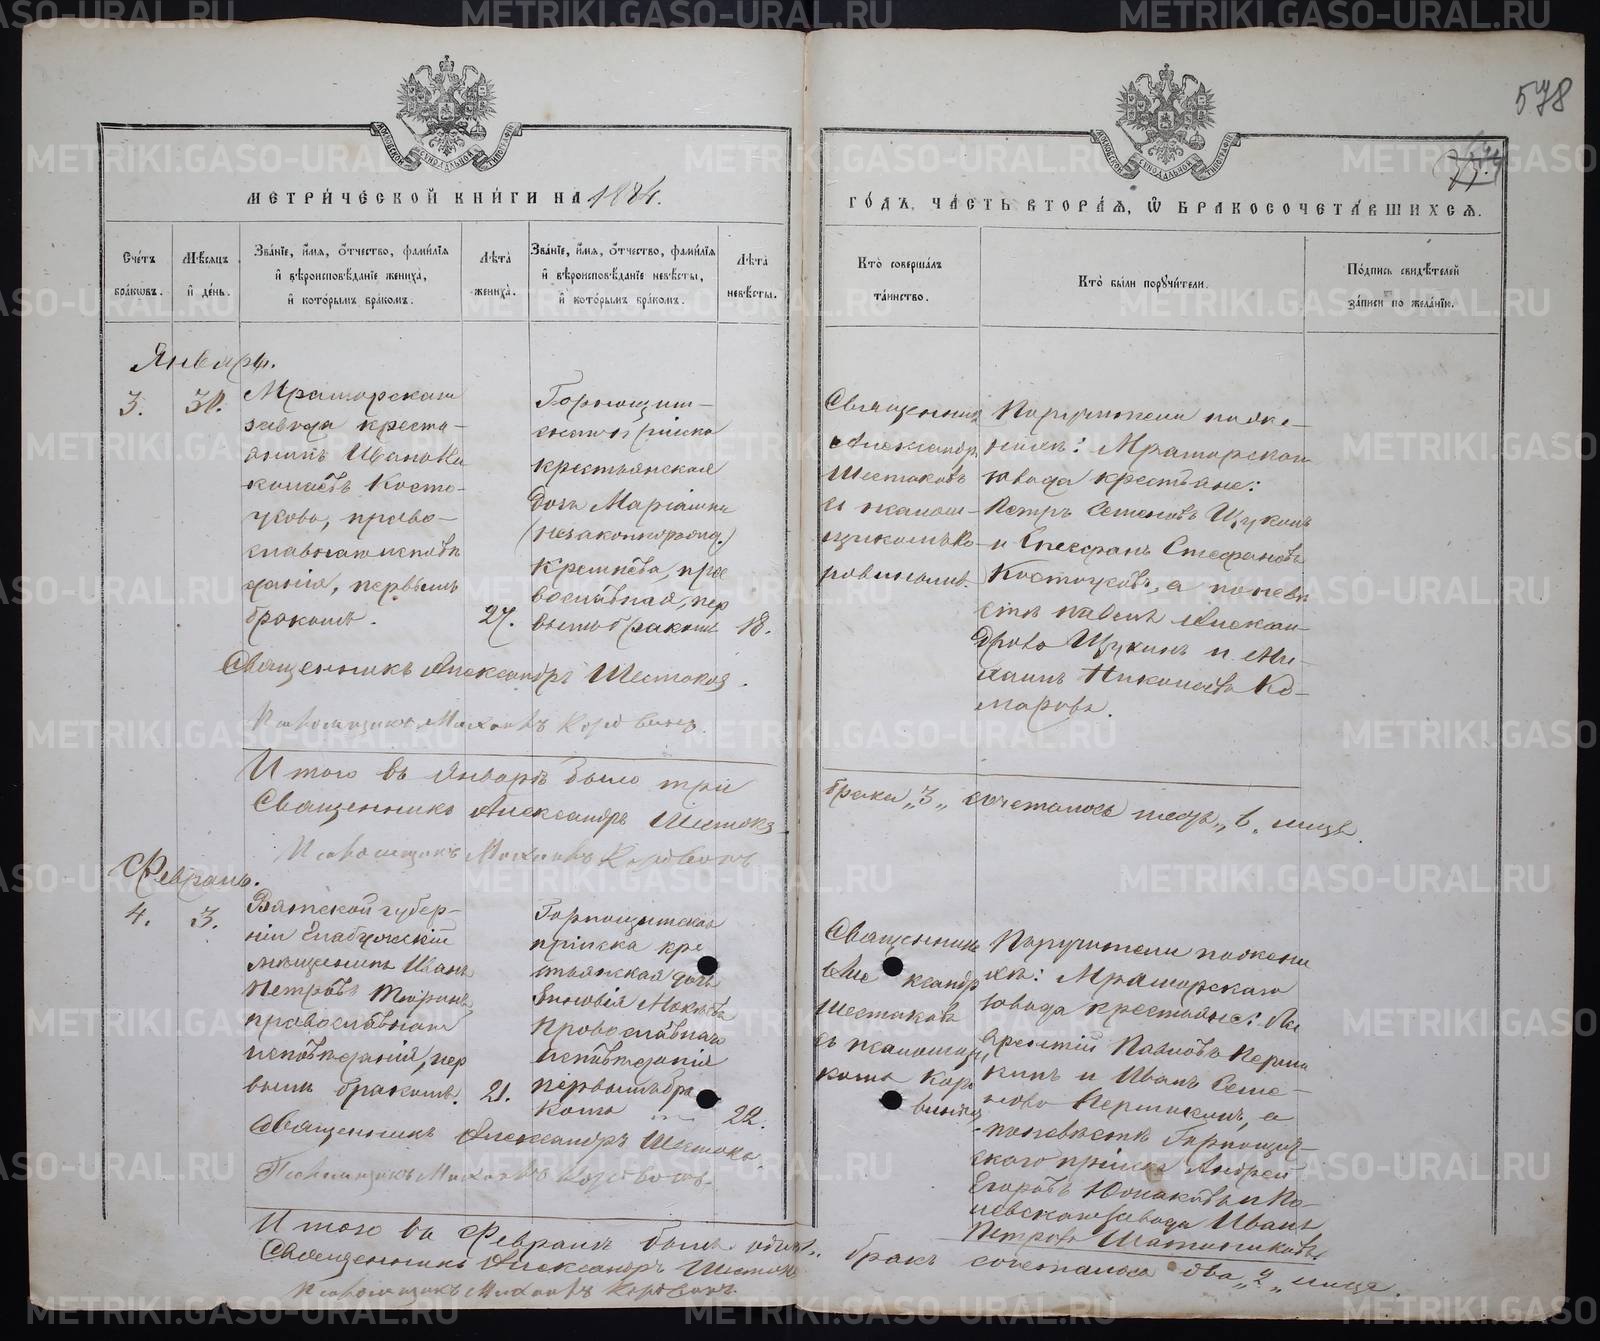 578
МЕТРИ́ЧЕСКОЙ КНИ́ГИ НА 1884.
ГО́ДЪ, ЧА́СТЬ ВТОРА́Я, Ѡ БРАКОСОЧЕТА́ВШИХСЯ.
Сче́тъ бра́ковъ.
Мѣ́сяцъ и де́нь.
Зва́нїе, и́мя, о́тчество, фами́лїя
и вѣроисповѣ́данїе жениха̀,
и кото́рымъ бра́комъ.
Лѣ́та жениха̀.
Зва́нїе, и́мя, о́тчество, фами́лїя
и вѣроисповѣ́данїе невѣ́сты,
и кото́рымъ бра́комъ.
Лѣ́та невѣ́сты.
Кто̀ соверша́лъ
та́инство.
Кто̀ бы́ли поручи́тели.
По́дпись свидѣ́телей
за́писи по жела́нїю.
Январь.
3.
31.
Мраморскаго
завода кресть-
янинъ Иванъ Ни
колаевъ Косто-
усовъ, право-
славнаго исповѣ
данія, первымъ
бракомъ.
27.
Горнощит-
скаго пріиска
крестьянская
дочь Маріамна
(незаконнорожд.)
пра
вославная, пер
вымъ бракомъ
18.
Священникъ
Александръ
Шестаковъ
съ псаломщ-
икомъ Ко-
ровинымъ.
Поручители по же-
нихѣ: Мраморскаго
завода крестьяне:
Петръ Семеновъ Щукинъ
и Стефановъ
Костоусовъ, а по невѣ
стѣ Павелъ Алексан-
дровъ Щукинъ и Ми-
хаилъ Николаевъ Ко-
маровъ.
Священникъ Александръ Шестаковъ.
Псаломщикъ Михаилъ Коровинъ.
Итого въ Январѣ было три
брака „3„ сочеталось шесть „6„ лицъ.
Священникъ Александръ Шестаковъ
Псаломщикъ Михаилъ Коровинъ
Февраль.
4.
3.
Вятской губер-
ніи Елабужскій
мѣщанинъ Иванъ
Петровъ
православнаго
исповѣданія, пер
вымъ бракомъ.
21.
Горнощитскаго
пріиска кре
стьянская дочь
Зиновія
Православнаго
исповѣданія
первымъ бра
комъ
22.
Священникъ
Александръ
Шестаковъ
съ псаломщи
комъ Коро
винымъ
Поручители по жени
хѣ: Мраморскаго
завода крестьяне:
Павловъ Перми
кинъ и Иванъ Семе-
новъ Пермикинъ, а
по невѣстѣ Горнощит-
скаго пріиска Андрей
Егоровъ и По-
левскаго завода Иванъ
Петровъ
Священникъ Александръ Шестаковъ.
Псаломщикъ Михаилъ Коровинъ.
Итого въ Февралѣ былъ одинъ
бракъ сочеталось два „2„ лица.
Священникъ Александръ Шестаковъ
Псаломщикъ Михаилъ Коровинъ.
METRIKI.GASO-URAL.RU